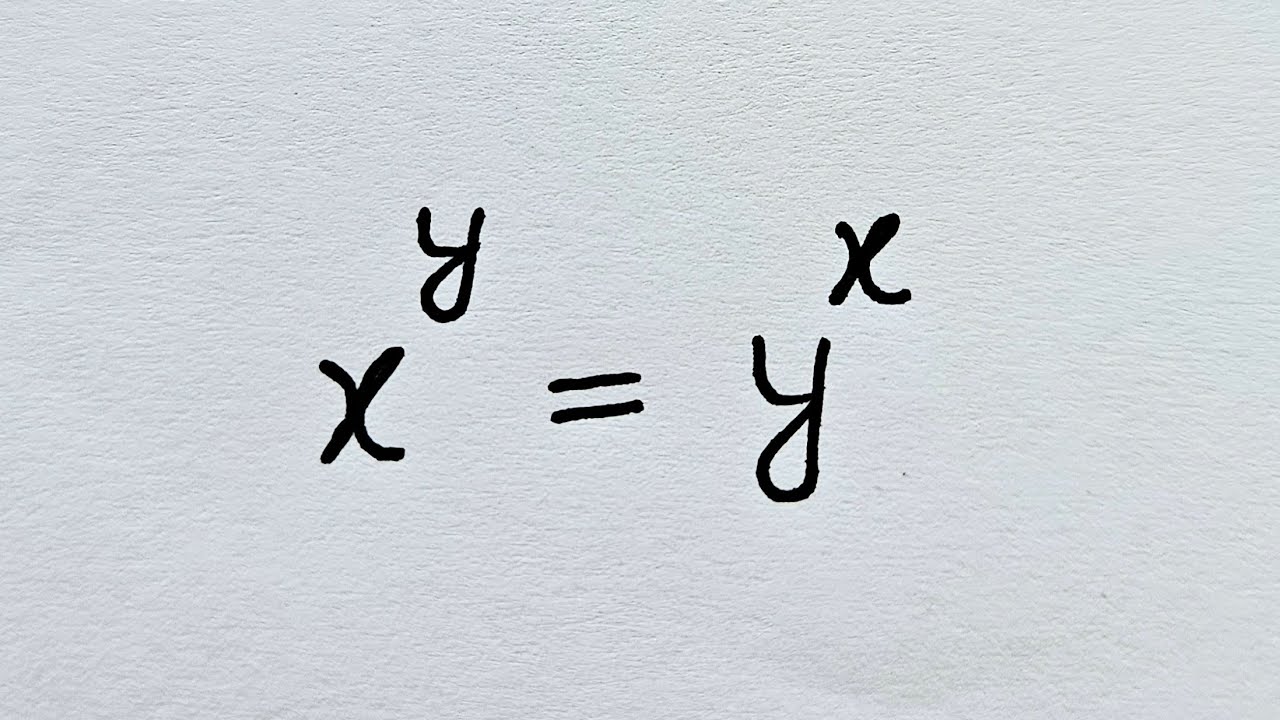 xʸ = yˣ